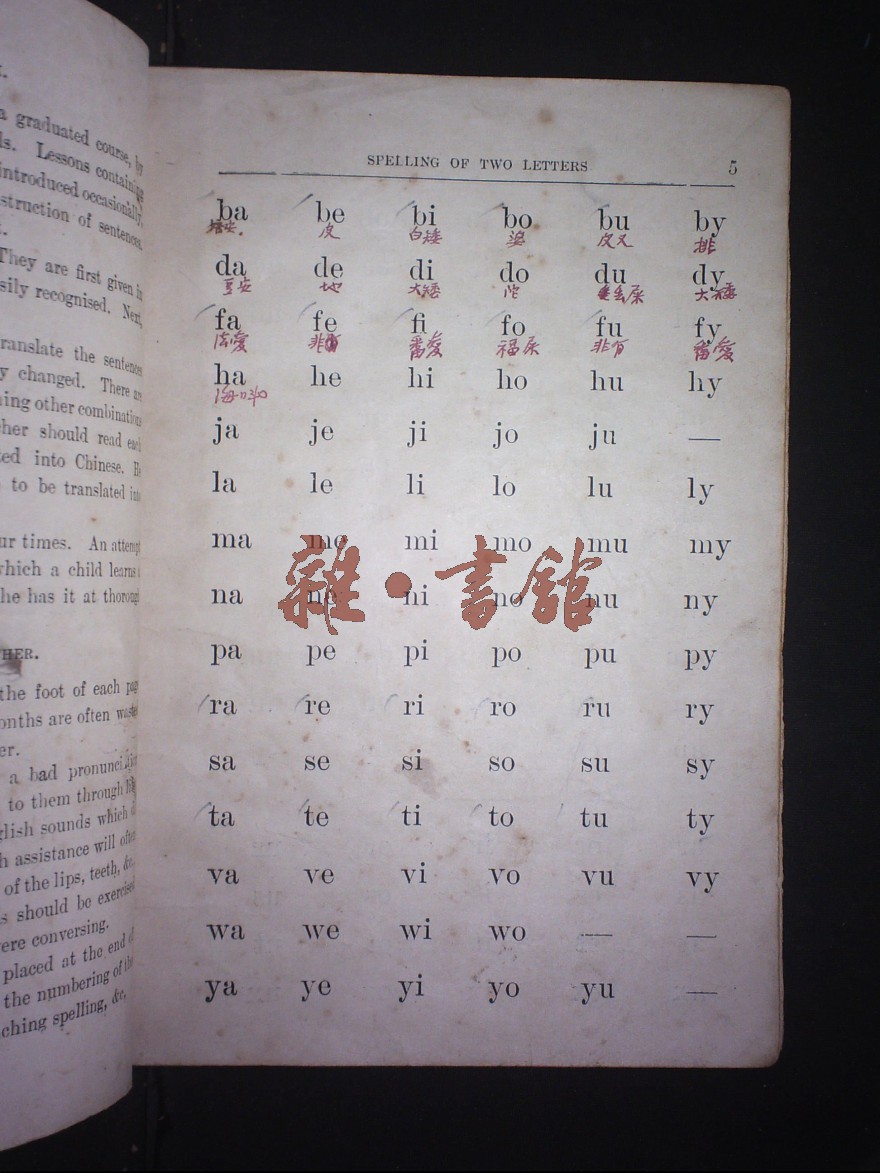 a graduated course, by
Lessons containing
introduced occasionally,
struction of sentences.
They are first given in
sily recognised. Next,
ranslate the sentences
y changed. There are
ning other combinations
cher should read each
ted into Chinese. He
to be translated into
ur times. An attempt
which a child learns a
he has it at thorough
HER.
the foot of each page
onths are often wasted
er.
a bad pronunciation
to them through his
glish sounds which
h assistance will often
of the lips, teeth, &c.,
s should be exercised
ere conversing.
placed at the end of
the numbering of the
ching spelling, &c.,
SPELLING OF TWO LETTERS 5
ba be bi bo bu by
皮 白矮 皮又 排
da de di do du dy
豆安 地 大矮 大矮
fa fe fi fo fu fy
法爱 番爱 福 番爱
ha he hi ho hu hy
ja je ji jo ju —
la le li lo lu ly
ma me mi mo mu my
na ne ni no nu ny
雜·書館
pa pe pi po pu py
ra re ri ro ru ry
sa se si so su sy
ta te ti to tu ty
va ve vi vo vu vy
wa we wi wo — —
ya ye yi yo yu —